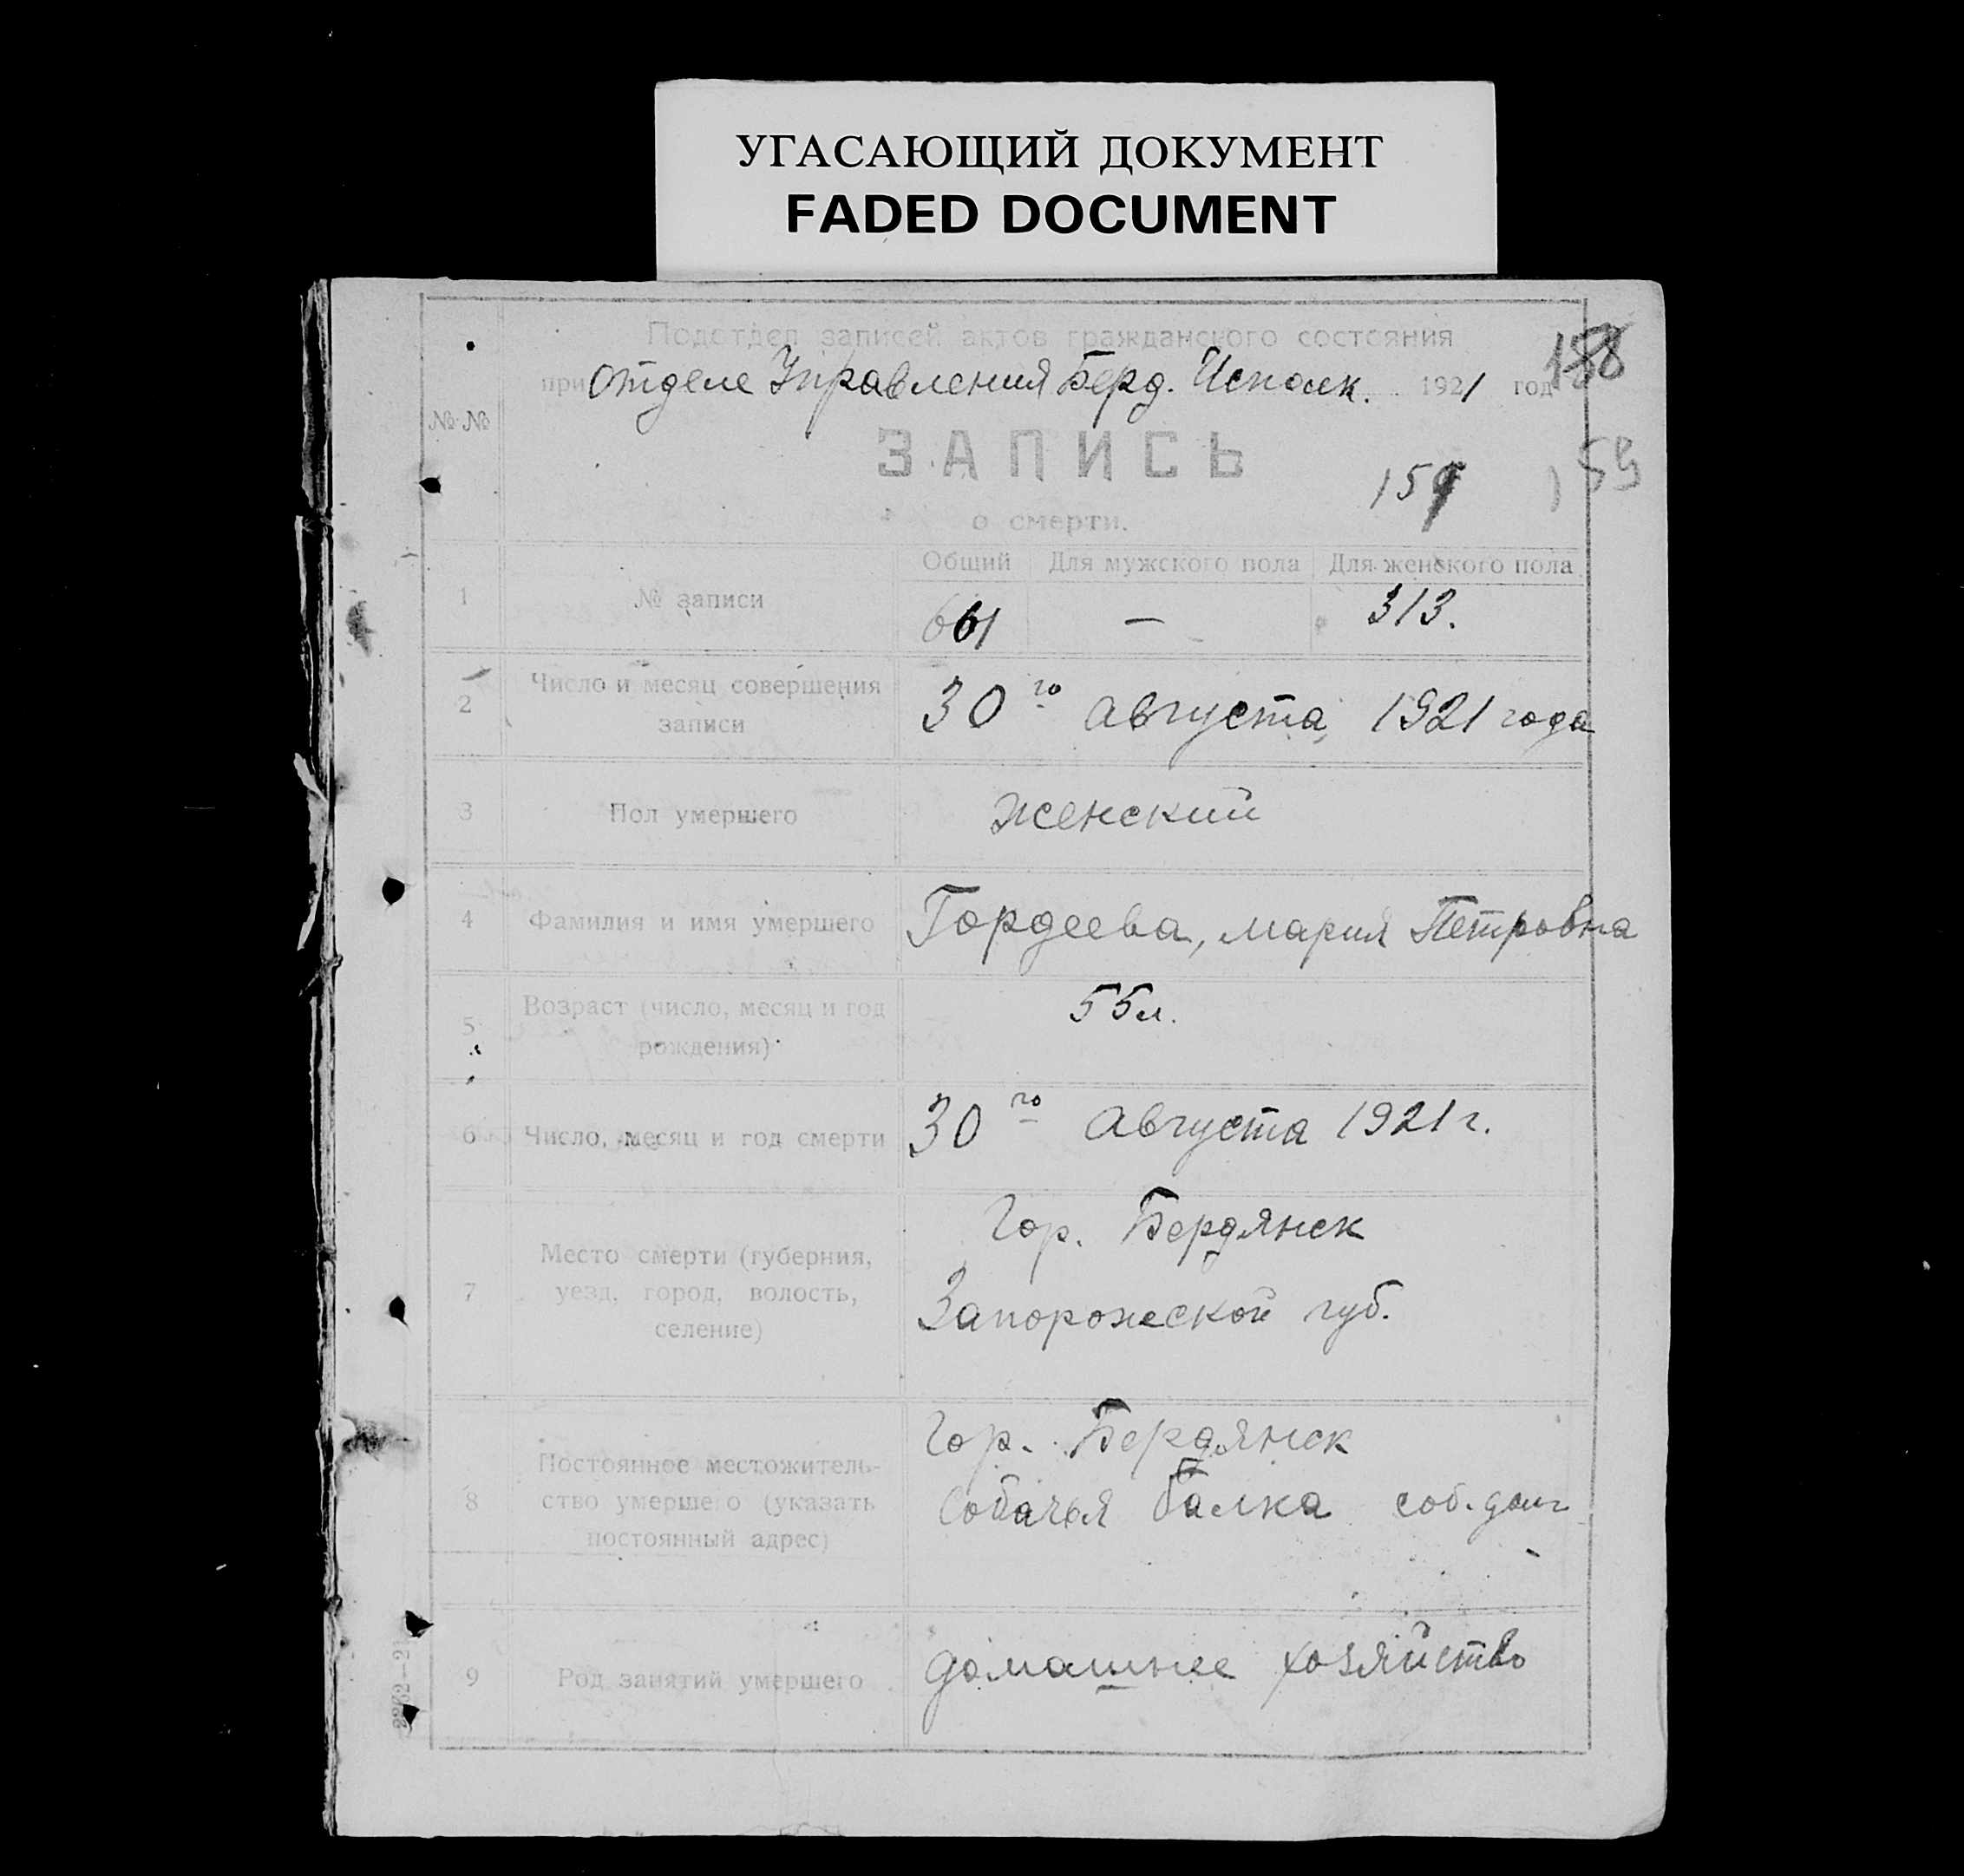 УГАСАЮЩИЙ ДОКУМЕНТ
FADED DOCUMENT
Подотдел записей актов гражданского состояния
при Отделе Управления Берд. Исполк. 1921 год
158
№ №
ЗАПИСЬ
159
159
о смерти.
Общий Для мужского пола Для женского пола
1 № записи 661 — 313.
2 Число и месяц совершения
записи
30го августа 1921 года
3 Пол умершего женский
4 Фамилия и имя умершего Гордеева, Мария Петровна
5 Возраст (число, месяц и год
рождения)
55 л.
6 Число, месяц и год смерти 30го августа 1921 г.
7 Место смерти (губерния,
уезд, город, волость,
селение)
Гор. Бердянск
Запорожской губ.
8 Постоянное местожитель-
ство умершего (указать
постоянный адрес)
Гор. Бердянск
Собачья балка соб. дом
9 Род занятий умершего домашнее хозяйство